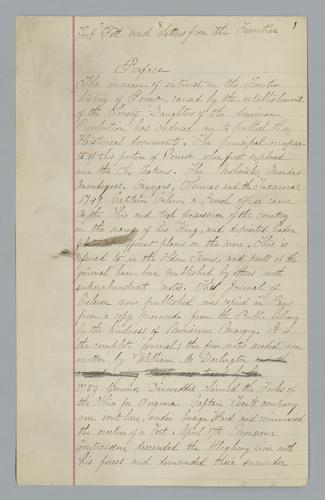 Fort Pitt and Letters from the Frontier 1
Preface
The increase of interest in the Frontier
history of Penna, caused by the establishment
of the Society Daughters of the American
Revolution has induced me to publish these
Historical documents. The principal occupants
of this portion of Penna when first explored
were the Six Nations. The Mohawks, Oneidas
Onondagoes, Cayugas, Senecas and the Tuscaroras.
1749 Captain Celeron a French officer came
to the Ohio and took possession of the country
in the name of his King, and deposited leaden
plates different places on the river. This is
refered to in the Olden Times, and part of the
journal have been published by others with
superabundant notes. This Journal of
Celeron now published was copied in Paris
from a copy procured from the Public library
by the kindness of Monsieur Margry. It is
the complete journal; the few notes needed were
written by William M. Darlington
1754 Governor Dinwiddie claimed the Forks of
the Ohio for Virginia. Captain Trent's company
were sent here, under Ensign Ward and commenced
the erection of a Fort. April 17th Monsieur
Contrecoeur descended the Allegheny river with
his forces and demanded their surrender